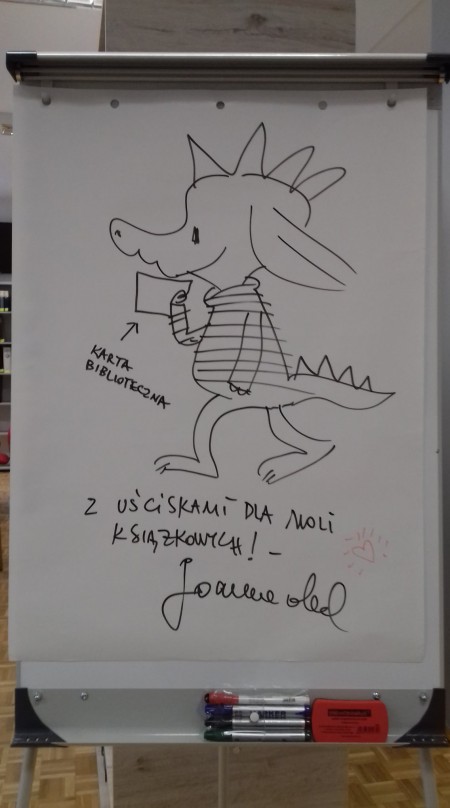 KARTA
BIBLIOTECZNA
Z UŚCISKAMI DLA MOLI
KSIĄŻKOWYCH! –